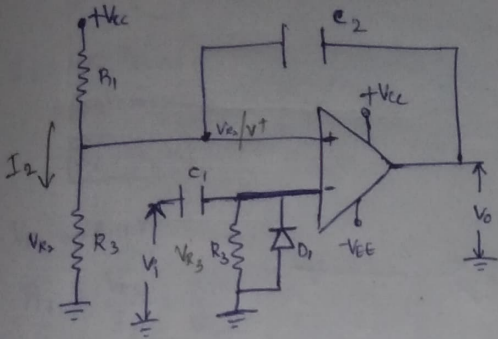 +Vcc
C2
R1
+Vcc
I2
VR2/V+
+
C1
-
VR2
R3
Vi
VR3
R3
D1
-VEE
Vo